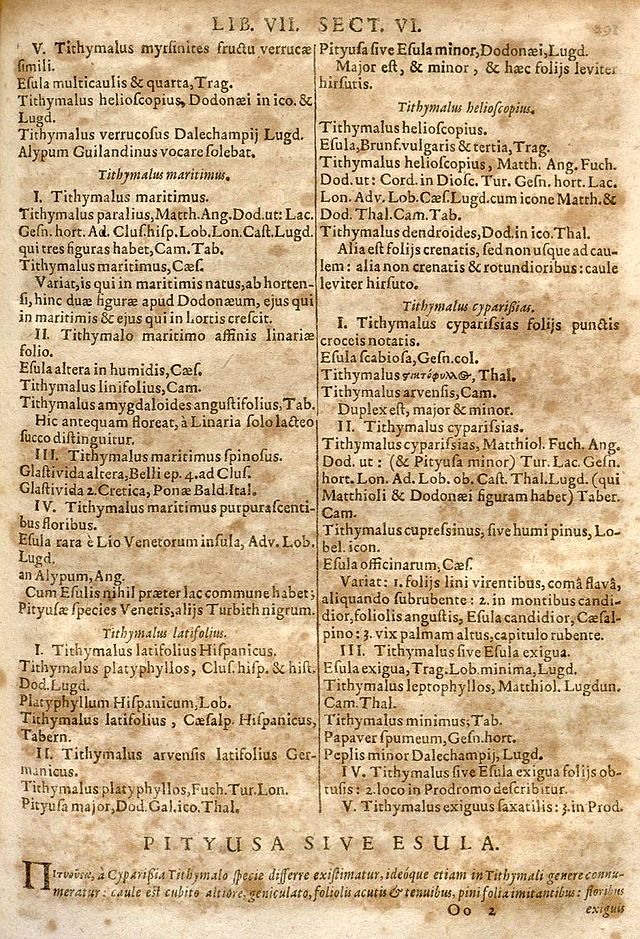 LIB. VII. SECT. VI.
291
V. Tithymalus myrsinites fructu verrucæ
simili.
Esula multicaulis & quarta, Trag.
Tithymalus helioscopius, Dodonæi in ico. &
Lugd.
Tithymalus verrucosus Dalechampij Lugd.
Alypum Guilandinus vocare solebat.
Tithymalus maritimus.
I. Tithymalus maritimus.
Tithymalus paralius, Matth. Ang. Dod. ut: Lac.
Gesn. hort. Ad. Clus. hisp. Lob. Lon. Cast. Lugd.
qui tres figuras habet, Cam. Tab.
Tithymalus maritimus, Cæs.
Variat, is qui in maritimis natus, ab horten-
si, hinc duæ figuræ apud Dodonæum, ejus qui
in maritimis & ejus qui in hortis crescit.
II. Tithymalo maritimo affinis linariæ
folio.
Esula altera in humidis, Cæs.
Tithymalus linifolius, Cam.
Tithymalus amygdaloides angustifolius, Tab.
Hic antequam floreat, à Linaria solo lacteo
succo distinguitur.
III. Tithymalus maritimus spinosus.
Glastivida altera, Belli ep. 4. ad Clus.
Glastivida 2. Cretica, Ponæ Bald. Ital.
IV. Tithymalus maritimus purpurascenti-
bus floribus.
Esula rara è Lio Venetorum insula, Adv. Lob.
Lugd.
an Alypum, Ang.
Cum Esulis nihil præter lac commune habet;
Pityusæ species Venetis, alijs Turbith nigrum.
Tithymalus latifolius.
I. Tithymalus latifolius Hispanicus.
Tithymalus platyphyllos, Clus. hisp. & hist.
Dod. Lugd.
Platyphyllum Hispanicum, Lob.
Tithymalus latifolius, Cæsalp. Hispanicus,
Tabern.
II. Tithymalus arvensis latifolius Ger-
manicus.
Tithymalus platyphyllos, Fuch. Tur. Lon.
Pityusa major, Dod. Gal. ico. Thal.
Pityusa sive Esula minor, Dodonæi, Lugd.
Major est, & minor, & hæc folijs leviter
hirsutis.
Tithymalus helioscopius.
Tithymalus helioscopius.
Esula, Brunf. vulgaris & tertia, Trag.
Tithymalus helioscopius, Matth. Ang. Fuch.
Dod. ut: Cord. in Diosc. Tur. Gesn. hort. Lac.
Lon. Adv. Lob. Cæs. Lugd. cum icone Matth. &
Dod. Thal. Cam. Tab.
Tithymalus dendroides, Dod. in ico. Thal.
Alia est folijs crenatis, sed non usque ad cau-
lem: alia non crenatis & rotundioribus: caule
leviter hirsuto.
Tithymalus cyparissias.
I. Tithymalus cyparissias folijs punctis
croceis notatis.
Esula scabiosa, Gesn. col.
Tithymalus στικτόφυλλος, Thal.
Tithymalus arvensis, Cam.
Duplex est, major & minor.
II. Tithymalus cyparissias.
Tithymalus cyparissias, Matthiol. Fuch. Ang.
Dod. ut: (& Pityusa minor) Tur. Lac. Gesn.
hort. Lon. Ad. Lob. ob. Cast. Thal. Lugd. (qui
Matthioli & Dodonæi figuram habet) Taber.
Cam.
Tithymalus cupressinus, sive humi pinus, Lo-
bel. icon.
Esula officinarum, Cæs.
Variat: 1. folijs lini virentibus, comâ flavâ,
aliquando subrubente: 2. in montibus candi-
dior, foliolis angustis, Esula candidior, Cæsal-
pino: 3. vix palmam altus, capitulo rubente.
III. Tithymalus sive Esula exigua.
Esula exigua, Trag. Lob. minima, Lugd.
Tithymalus leptophyllos, Matthiol. Lugdun.
Cam. Thal.
Tithymalus minimus, Tab.
Papaver spumeum, Gesn. hort.
Peplis minor Dalechampij, Lugd.
IV. Tithymalus sive Esula exigua folijs ob-
tusis: 2. loco in Prodromo describitur.
V. Tithymalus exiguus saxatilis: 3. in Prod.
PITYUSA SIVE ESULA.
Πιτυουσα, à Cyparissia Tithymalo specie differre existimatur, ideóque etiam in Tithymali genere connu-
meratur: caule est cubito altiore, geniculato, foliolis acutis & tenuibus, pini folia imitantibus: floribus
Oo 2
exiguis